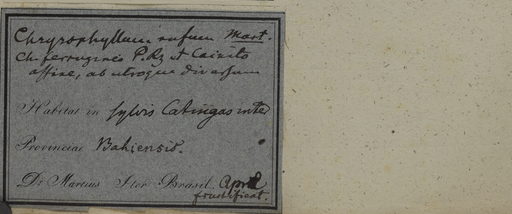 Chrysophyllum rufum Mart.
Ch. ferrugineo P. Rz et Cainito
affine, ab utroque diversum
Habitat in sylvis Catingas inter
Provinciae Bahiensis.
Dr Martius Iter Brasil. April
fructificat.